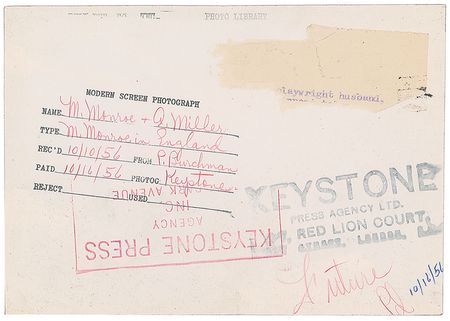 PHOTO LIBRARY
playwright husband,
MODERN SCREEN PHOTOGRAPH
NAME M. Monroe + A. Miller
TYPE M. Monroe in England
REC'D 10/10/56 FROM P. Burchman
PAID 10/16/56 PHOTOG Keystone
REJECT USED
KEYSTONE PRESS
AGENCY
INC
PARK AVENUE
KEYSTONE
PRESS AGENCY LTD.
RED LION COURT,
STREET, LONDON,
Future
10/16/56